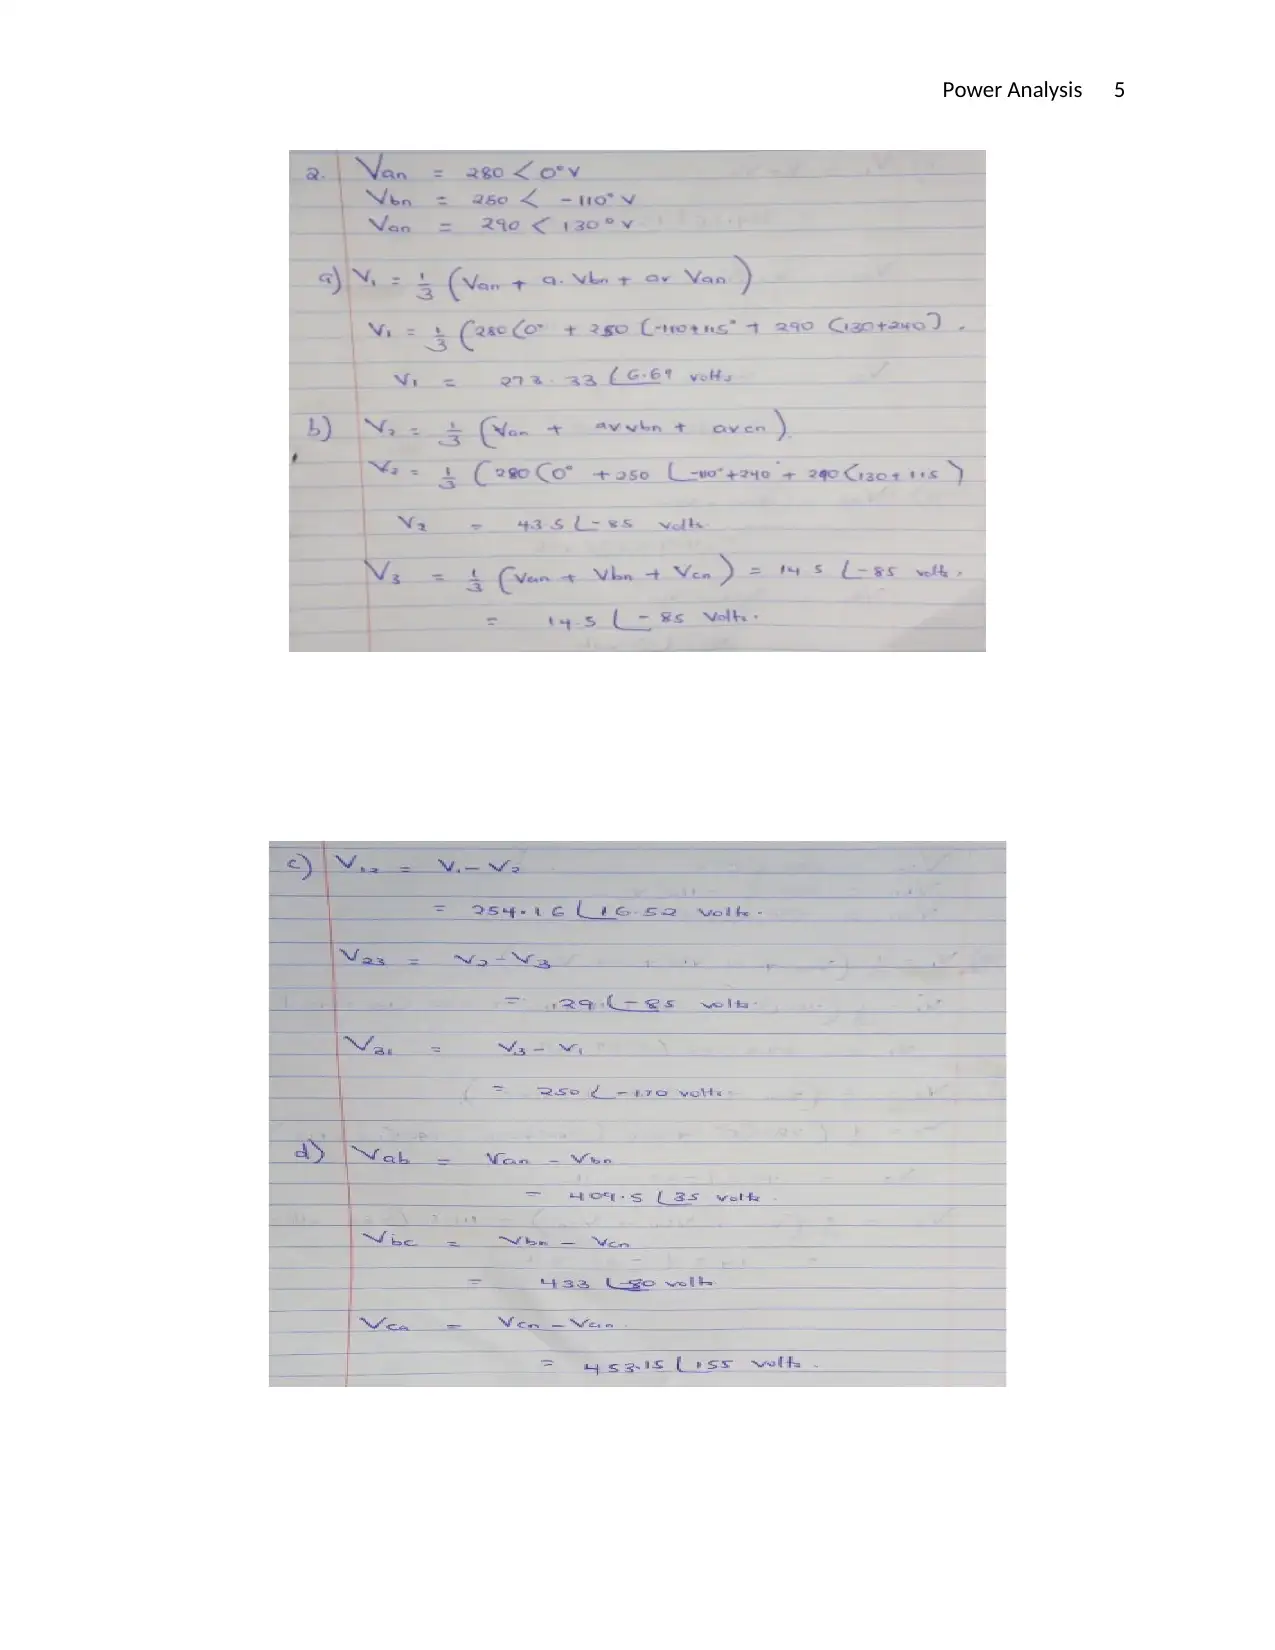 Power Analysis 5
2. Van = 280 < 0° V
Vbn = 250 < -110° V
Van = 290 < 130° V
a) V1 = 1/3 (Van + a. Vbn + av Van)
V1 = 1/3 (280 (0° + 250 (-110+115° + 290 (130+240).
V1 = 273.33 ∠6.69 volts
b) V2 = 1/3 (Van + av vbn + avcn).
V2 = 1/3 (280 (0° + 250 ∠-110°+240° + 290 (130+115)
V2 = 43.5 ∠-85 volts.
V3 = 1/3 (Van + Vbn + Vcn) = 14 5 ∠-85 volts.
= 14.5 ∠-85 Volts.
c) V12 = V1 - V2
= 254.16 ∠16.52 volts.
V23 = V2 - V3
= 29 ∠-85 volts.
V31 = V3 - V1
= 250 ∠-170 volts.
d) Vab = Van - Vbn
= 409.5 ∠35 volts.
Vbc = Vbn - Vcn
= 433 ∠-80 volts
Vca = Vcn - Van.
= 453.15 ∠155 volts.